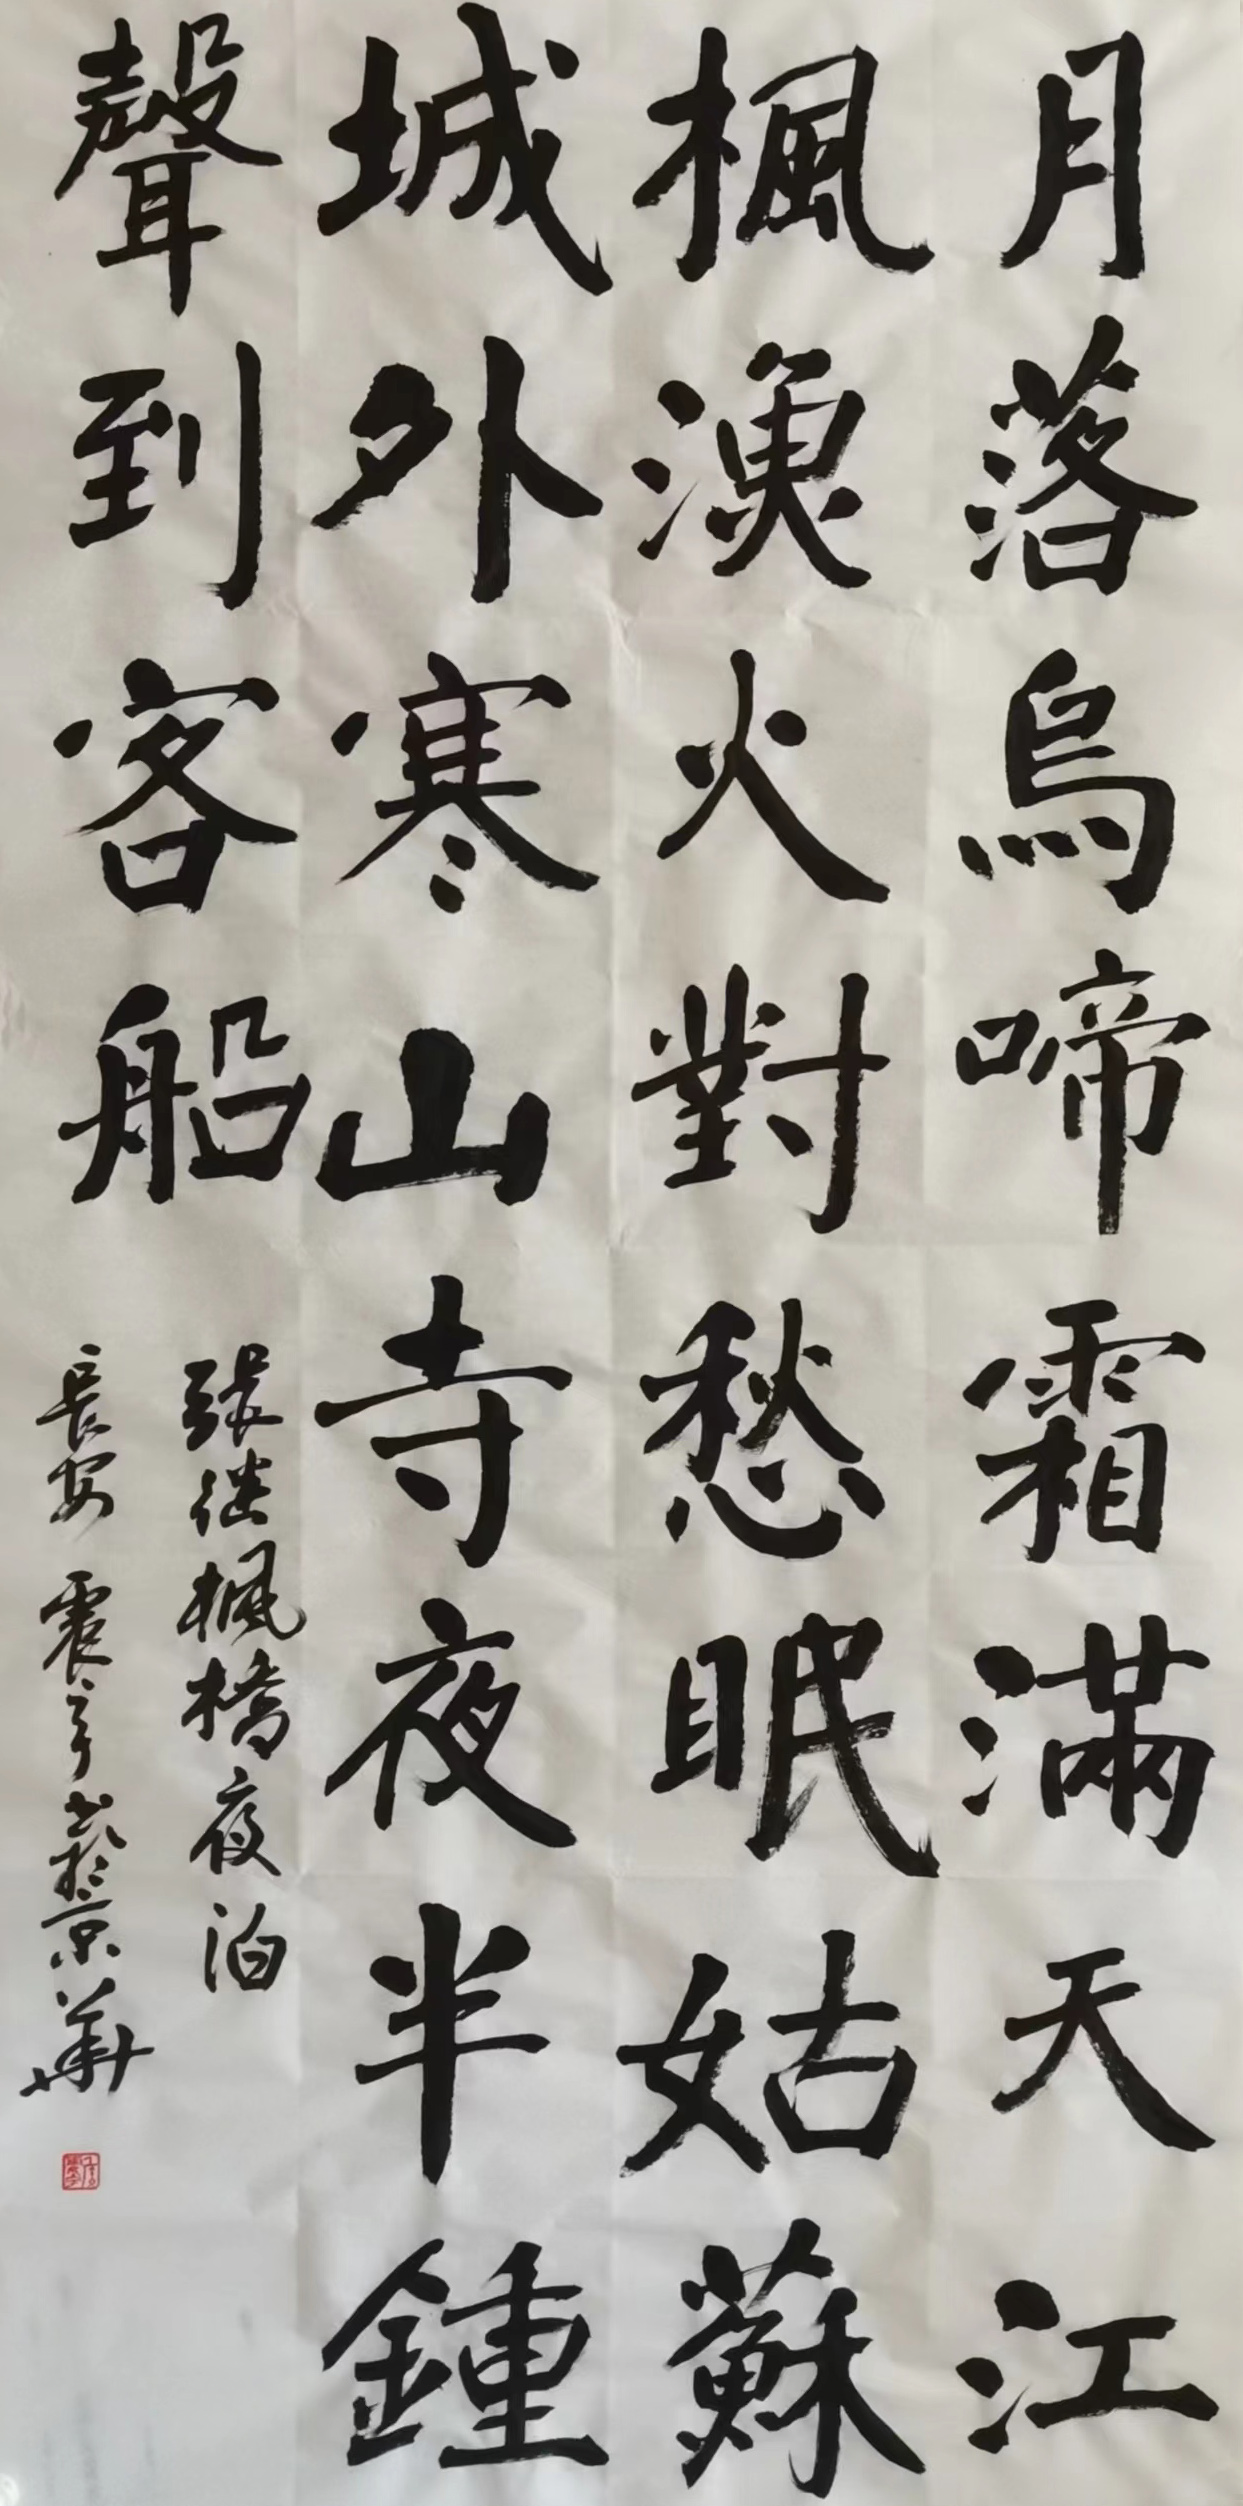 月落烏啼霜滿天江
楓漁火對愁眠姑蘇
城外寒山寺夜半鍾
聲到客船
張继楓橋夜泊
長安 震亭书於京華